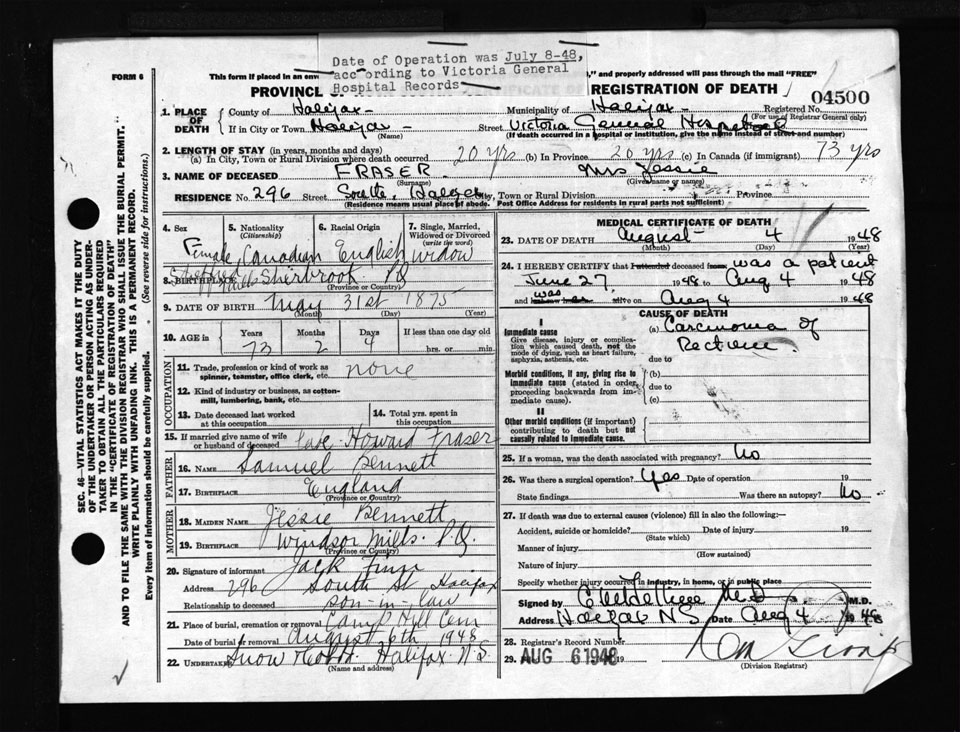 Date of Operation was July 8-48,
acc ording to Victoria General
Hospital Records
FORM 6
This form if placed in an env
," and properly addressed will pass through the mail "FREE"
PROVINC
REGISTRATION OF DEATH
04500
1. PLACE OF DEATH
County of Halifax
Municipality of Halifax
Registered No.
(For use of Registrar General only)
If in City or Town Halifax
(Name)
Street Victoria General Hospital
(If death occurred in a hospital or institution, give the name instead of street and number)
2. LENGTH OF STAY (in years, months and days)
(a) In City, Town or Rural Division where death occurred 20 yrs (b) In Province 20 yrs (c) In Canada (if immigrant) 73 yrs
3. NAME OF DECEASED FRASER Mrs Jessie
(Surname) (Given name or name)
RESIDENCE No. 296 Street South, Halifax City, Town or Rural Division Province
(Residence means usual place of abode. Post Office Address for residents in rural parts not sufficient)
4. Sex
5. Nationality
(Citizenship)
6. Racial Origin
7. Single, Married,
Widowed or Divorced
(write the word)
Female Canadian English widow
8. BIRTHPLACE Sherbrook P.Q
(Province or Country)
9. DATE OF BIRTH May 31st 1875
(Month) (Day) (Year)
10. AGE in
Years Months Days If less than one day old
73 2 4 hrs. or min.
OCCUPATION
11. Trade, profession or kind of work as
spinner, teamster, office clerk, etc. none
12. Kind of industry or business, as cotton-
mill, lumbering, bank, etc.
13. Date deceased last worked
at this occupation
14. Total yrs. spent in
this occupation
15. If married give name of wife
or husband of deceased late Howard Fraser
FATHER
16. NAME Samuel Bennett
17. BIRTHPLACE England
(Province or Country)
MOTHER
18. MAIDEN NAME Jessie Bennett
19. BIRTHPLACE Windsor Mills. P.Q.
(Province or Country)
20. Signature of informant Jack Finn
Address 296 South St Halifax
Relationship to deceased son-in-law
21. Place of burial, cremation or removal Camp Hill Cem
Date of burial or removal August 6th 1948
22. UNDERTAKER Snow & Co Ltd. Halifax N.S.
(Name and address)
MEDICAL CERTIFICATE OF DEATH
23. DATE OF DEATH August 4 1948
(Month) (Day) (Year)
24. I HEREBY CERTIFY that I attended deceased from was a patient
June 27 1948 to Aug 4 1948
and last saw her was alive on Aug 4 1948
CAUSE OF DEATH
I
Immediate cause
Give disease, injury or complica-
tion which caused death, not the
mode of dying, such as heart failure,
asphyxia, asthenia, etc.
(a) Carcinoma of
Rectum.
due to
Morbid conditions, if any, giving rise to
immediate cause (stated in order
proceeding backwards from im-
mediate cause).
(b)
due to
(c)
II
Other morbid conditions (if important)
contributing to death but not
causally related to immediate cause.
25. If a woman, was the death associated with pregnancy? No
26. Was there a surgical operation? Yes Date of operation 19
State findings Was there an autopsy? No
27. If death was due to external causes (violence) fill in also the following:—
Accident, suicide or homicide? Date of injury 19
(State which)
Manner of injury
(How sustained)
Nature of injury
Specify whether injury occurred in industry, in home, or in public place
Signed by M.D.
Address Halifax N S Date Aug 4 1948
28. Registrar's Record Number
29. AUG 6 1948 19
(Division Registrar)
SEC. 46—VITAL STATISTICS ACT MAKES IT THE DUTY
OF THE UNDERTAKER OR PERSON ACTING AS UNDER-
TAKER TO OBTAIN ALL THE PARTICULARS REQUIRED
IN THE "CERTIFICATE OF REGISTRATION OF DEATH"
AND TO FILE THE SAME WITH THE DIVISION REGISTRAR WHO SHALL ISSUE THE BURIAL PERMIT.
WRITE PLAINLY WITH UNFADING INK. THIS IS A PERMANENT RECORD.
Every item of information should be carefully supplied. (See reverse side for instructions.)